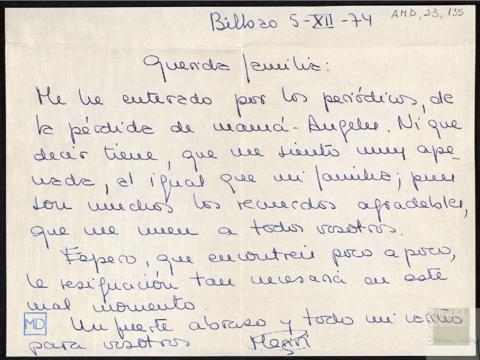 Bilbao 5-XII-74 AMD, 23, 135
Querida familia:
Me he enterado por los periódicos, de
la pérdida de mamá-Angeles. Ni que
decir tiene, que me siento muy ape-
nada, al igual que mi familia; pues
son muchos los recuerdos agradables,
que me unen a todos vosotros.
Espero, que encontreis poco a poco,
la resignación tan necesaria en este
mal momento.
Un fuerte abrazo y todo mi cariño
para vosotros
MD